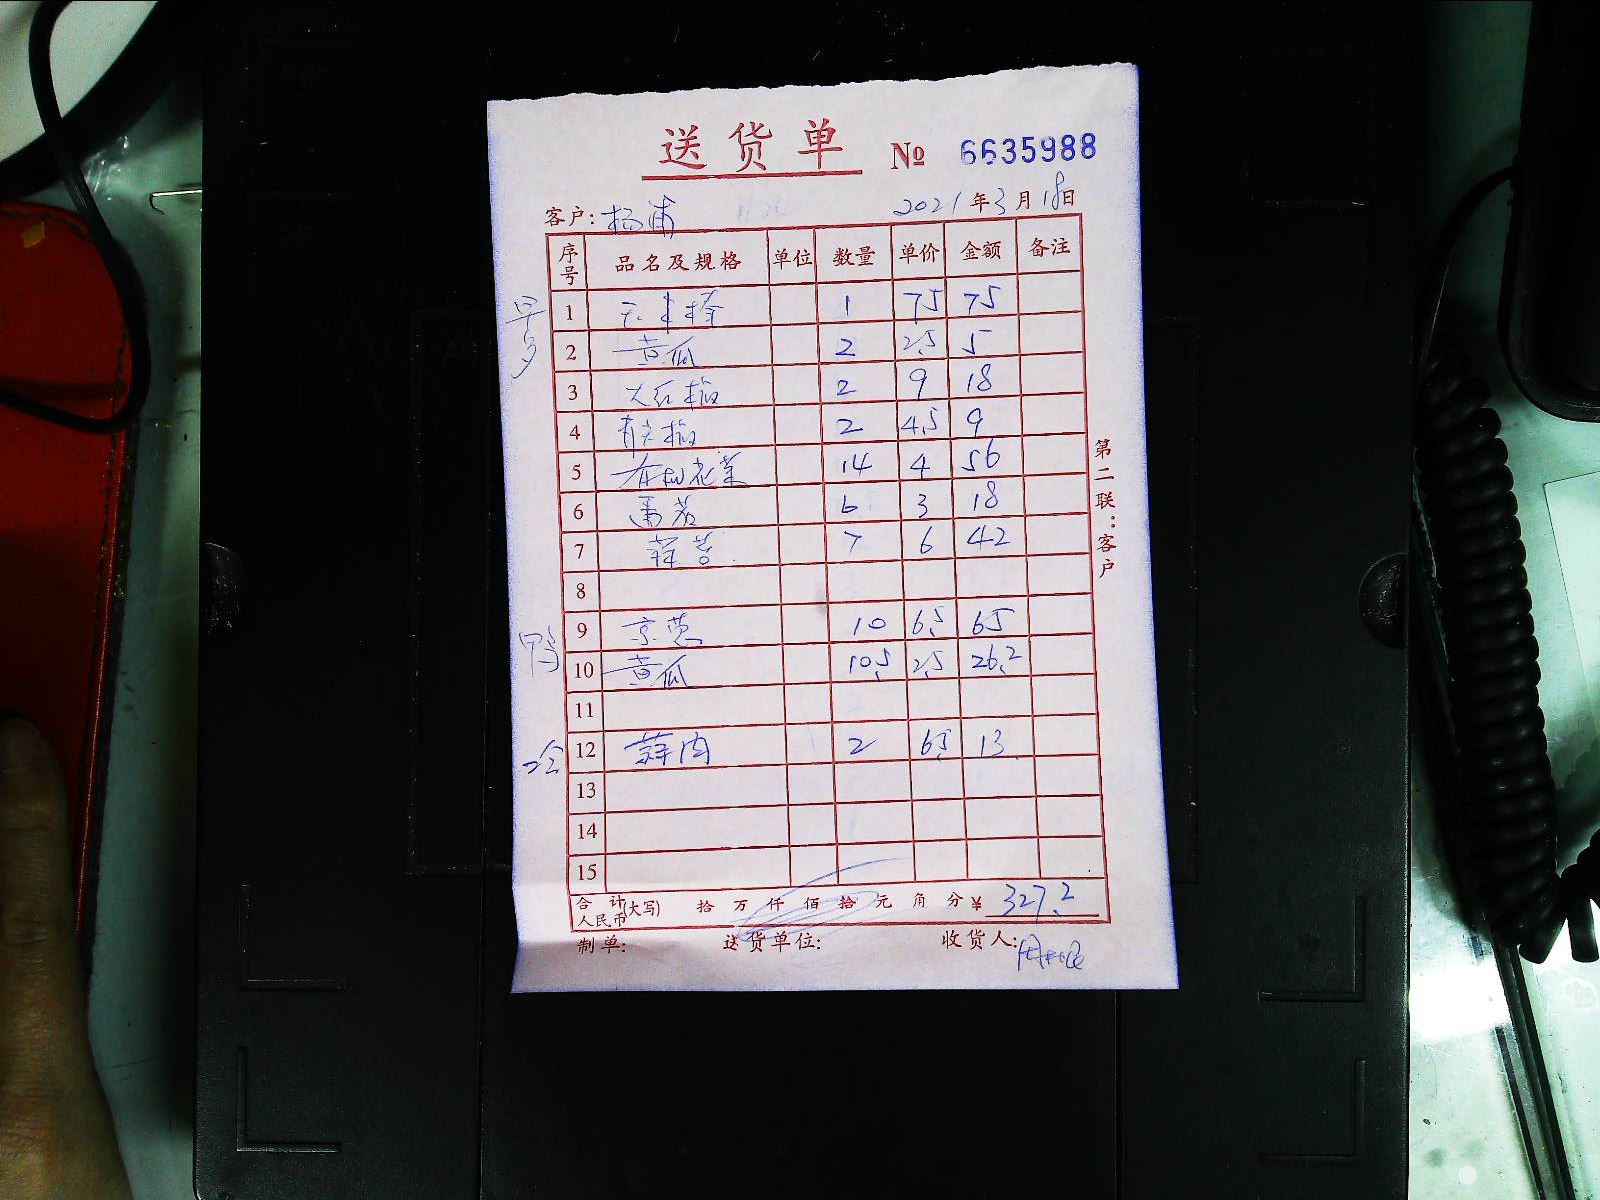 送货单 № 6635988
客户: 杨浦 2021年3月18日
序号 品名及规格 单位 数量 单价 金额 备注
1 1 75 75
2 黄瓜 2 2.5 5
3 大红椒 2 9 18
4 青尖椒 2 4.5 9
5 有机花菜 14 4 56
6 番茄 6 3 18
7 7 6 42
8
9 京葱 10 6.5 65
10 黄瓜 10.5 2.5 26.2
11
12 蒜肉 2 6.5 13
13
14
15
合计人民币(大写) 拾 万 仟 佰 拾 元 角 分 ¥ 327.2
制单: 送货单位: 收货人:
第二联:客户
鸭
冷